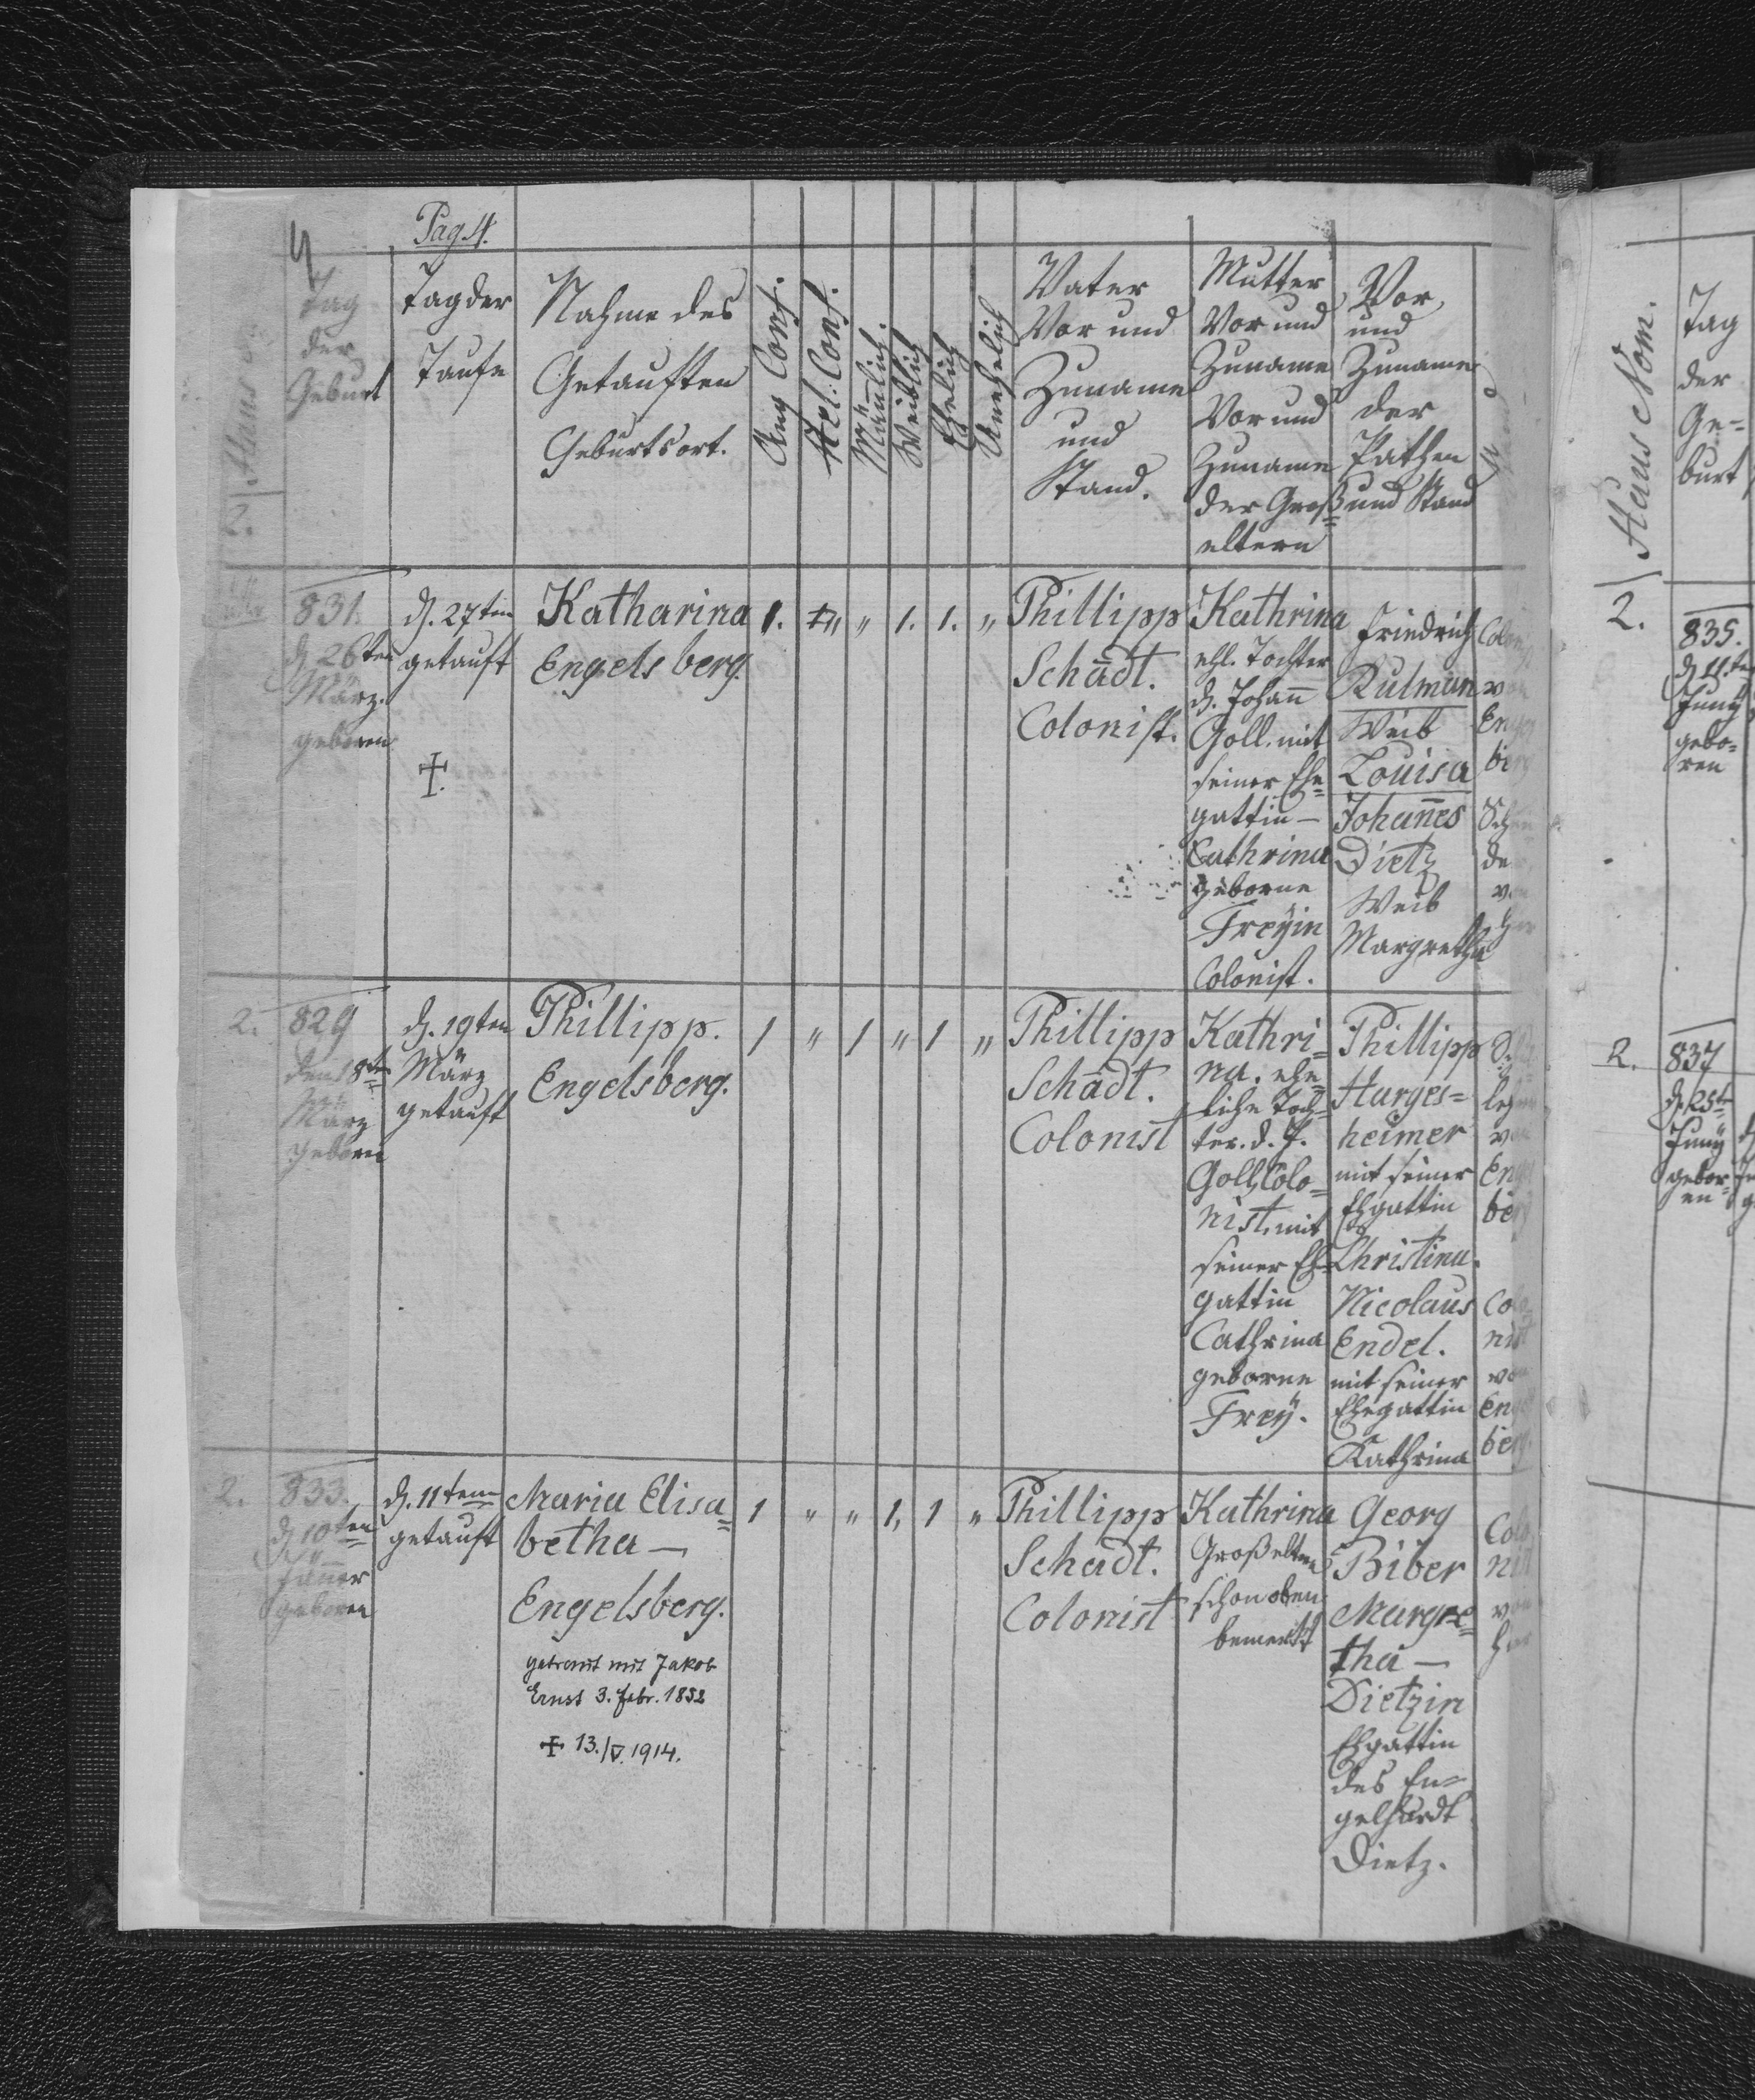 Pag. 4.
Haus
Tag
der
Geburt
Tag der
Taufe
Nahme des
Getauften
Geburtsort.
Aug. Conf.
Hel. Conf.
Mänlich.
Weiblich
Ehelich
Unehelich
Vater
Vor und
Zuname
und
Stand.
Mutter
Vor und
Zuname
Vor und
Zuname
der Groß=
eltern
Vor
und
Zuname
der
Pathen
und Stand
831.
d. 26ten
März.
geboren
d. 27ten
getauft
Katharina
Engelsberg.
1. „ „ 1. 1. „
Phillipp
Schädt.
Colonist.
Kathrina
ehl. Tochter
d. Johañ
Goll. mit
seiner Ehe=
gattin —
Cathrina
geborne
Freyin
Colonist.
Friedrich
Rulman
Weib
Louisa
Johañes
Dietz
Weib
Margretha
2.
829
den 18te
März
geboren
d. 19ten
März
getauft
Phillipp.
Engelsberg.
1 „ 1 „ 1 „
Phillipp
Schädt.
Colonist
Kathri=
na. ehe=
liche Toch=
ter. d. J.
Goll, Colo=
nist, mit
seiner Eh=
gattin
Cathrina
geborne
Frey.
Phillipp
Harges=
heimer
mit seiner
Ehgattin
Christina.
Nicolaus
Endel.
mit seiner
Ehegattin
Kathrina
2.
833.
d. 10ten
Jäner
geboren
d. 11ten
getauft
Maria Elisa=
betha —
Engelsberg.
getraut mit Jakob
Ernst 3. Febr. 1852
✝ 13./V. 1914.
1 „ „ 1. 1 „
Phillipp
Schadt.
Colonist
Kathrina
Großeltern
schon oben
bemerkt
Georg
Biber
Margre=
tha —
Dietzin
Ehgattin
des En=
gelhardt
Dietz.
Haus Nom.
Tag
der
Ge=
burt
2.
835.
d. 11.te
Juny
gebo=
ren
2.
837
d. 25te
Juny
gebor=
en